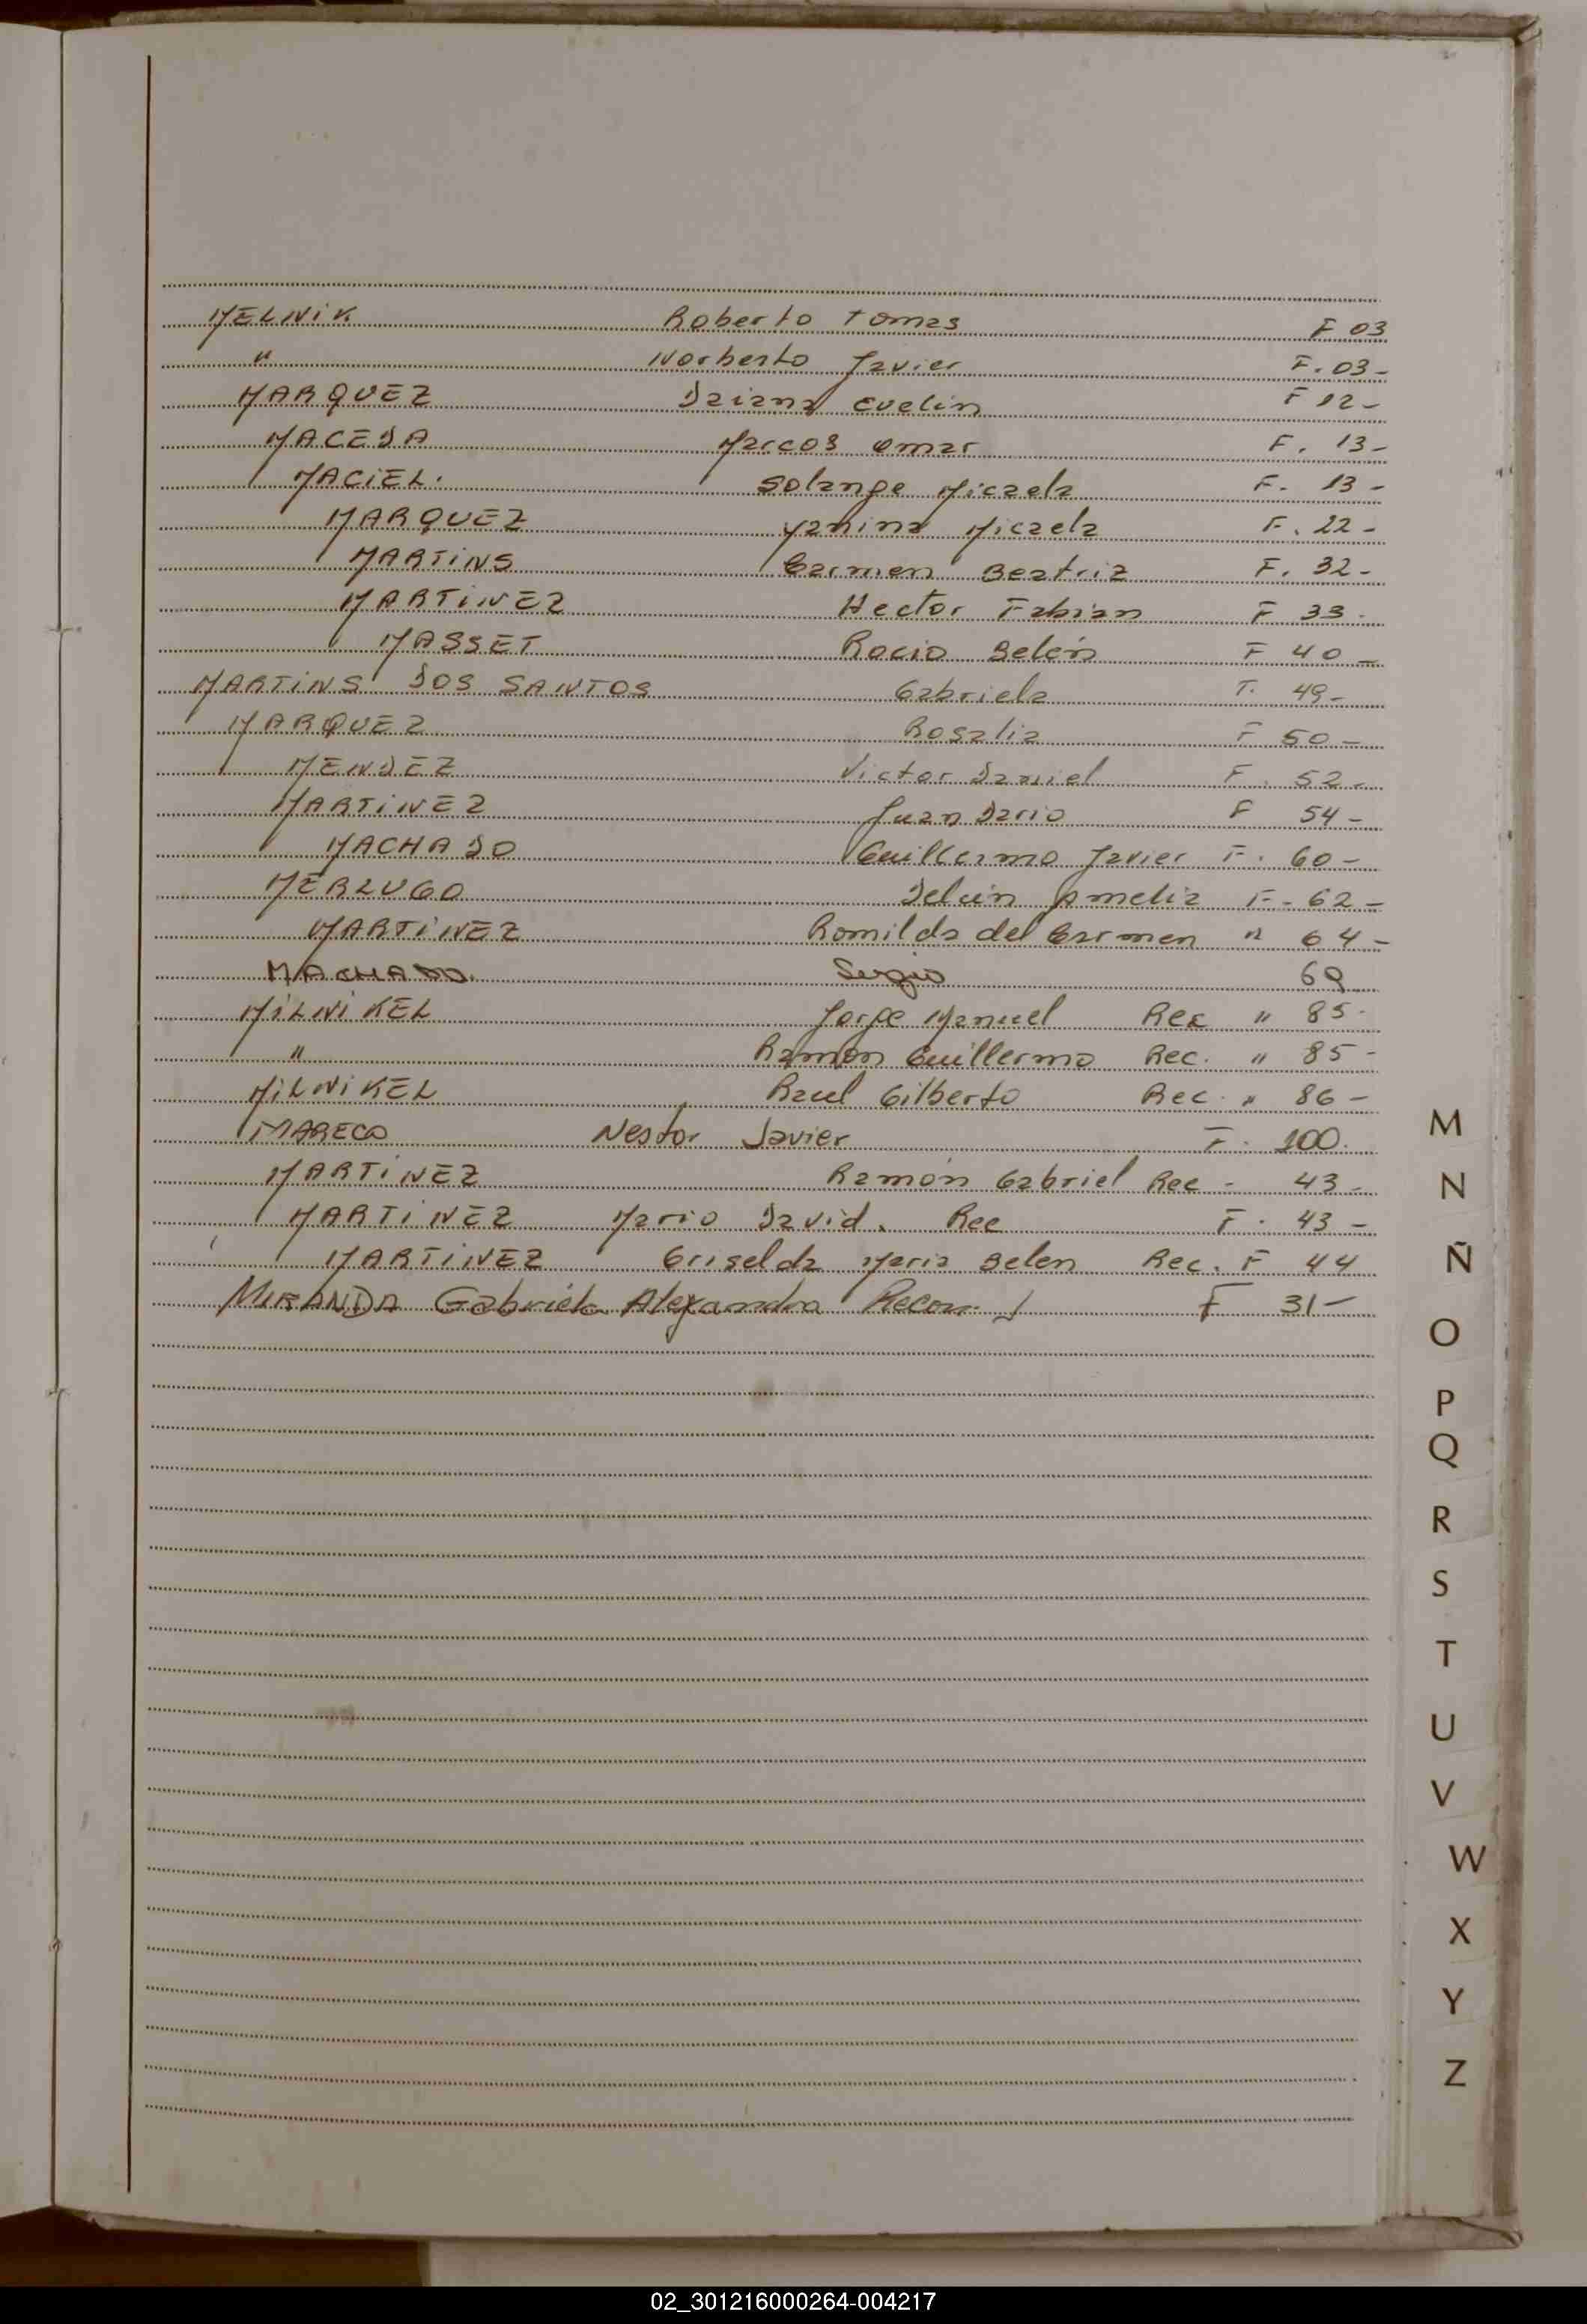 MELNIK Roberto Tomas F 03
" Norberto Javier F. 03-
MARQUEZ Daiana Evelin F 12-
MACEDA Marcos Omar F. 13-
MACIEL. Solange Micaela F. 13-
MARQUEZ Yanina Micaela F. 22-
MARTINS Carmen Beatriz F. 32-
MARTINEZ Hector Fabian F 33-
MASSET Rocio Belén F 40-
MARTINS DOS SANTOS Gabriela T. 49-
MARQUEZ Rosalia F 50-
MENDEZ Victor Daniel F. 52-
MARTINEZ Juan Dario F 54-
MACHADO Guillermo Javier F. 60-
MERLUGO Amelia F. 62-
MARTINEZ Romilda del Carmen " 64-
MACHADO. Sergio 69
MILNIKEL Jorge Manuel Rec " 85-
" Ramon Guillermo Rec. " 85-
MILNIKEL Raul Gilberto Rec. " 86-
MARECO Nestor Javier F. 100.
MARTINEZ Ramón Gabriel Rec - 43-
MARTINEZ Mario David. Rec F. 43-
MARTINEZ Griselda Maria Belen Rec. F 44
MIRANDA Gabriela Alexandra Recon. F 31-
M
N
Ñ
O
P
Q
R
S
T
U
V
W
X
Y
Z
02_301216000264-004217